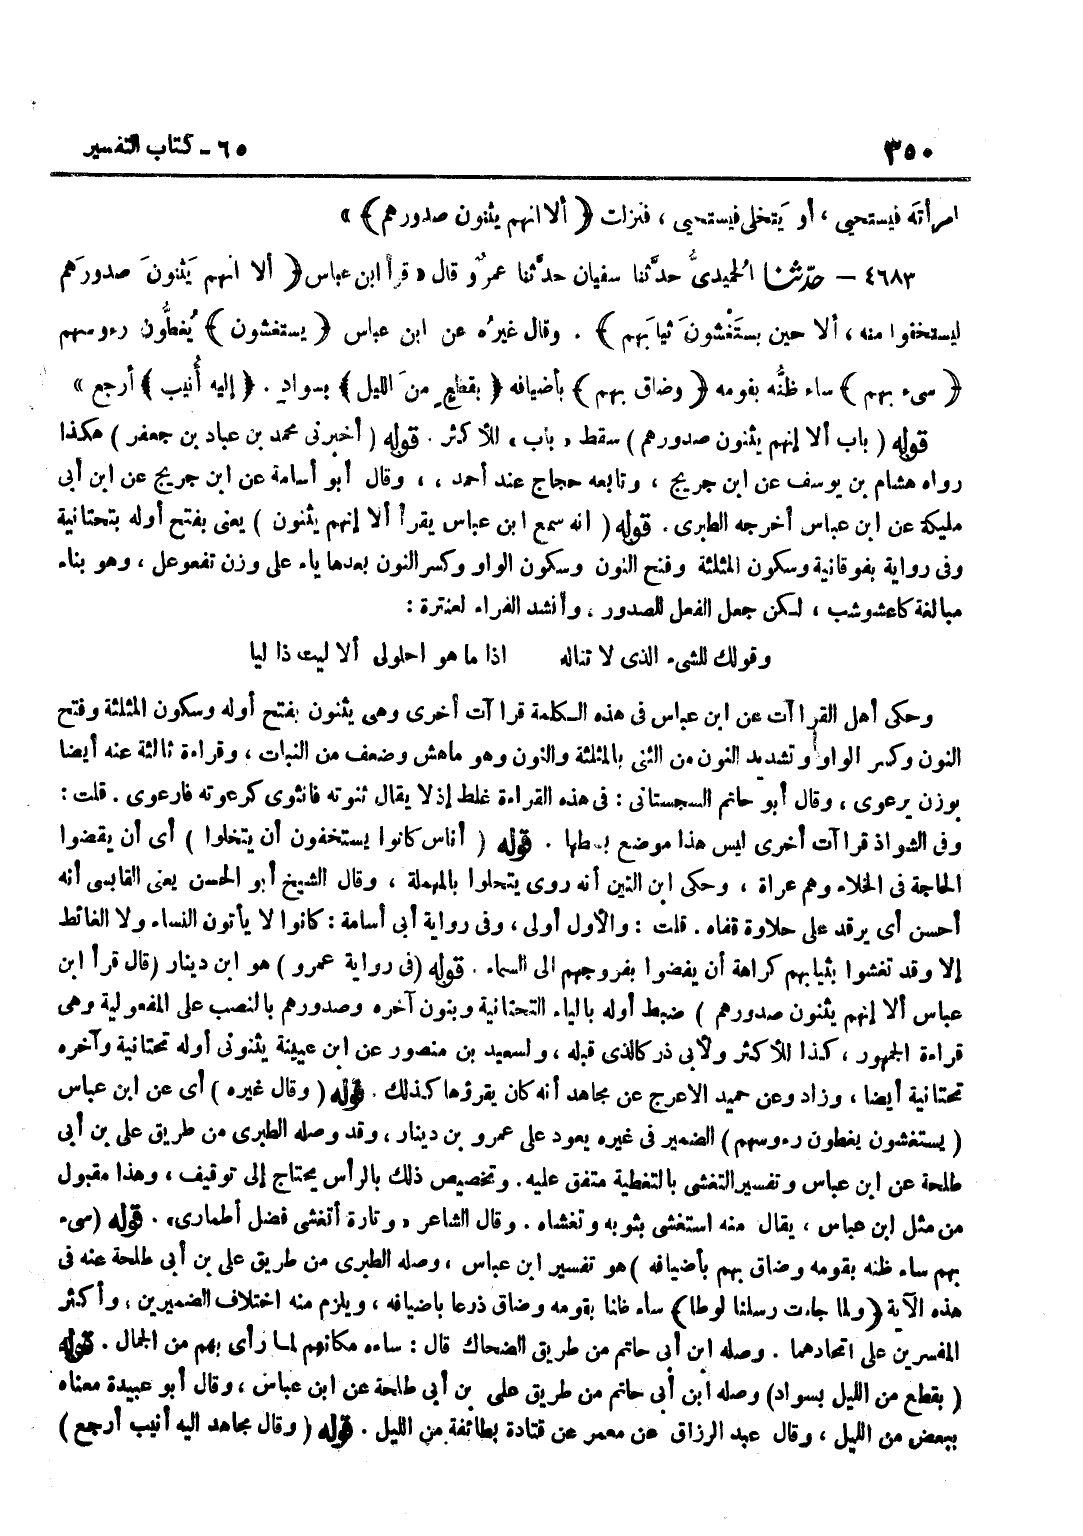 ٣٥٠ ٦٥ - كتاب التفسير
امرأته فيستحيى ، أو يَتخلى فيستحيى ، فنزلت ﴿ ألا انهم يثنون صدورهم ﴾ »
٤٦٨٣ - حدّثنا الحميدىُّ حدَّثنا سفيان حدَّثنا عمرٌو قال « قرأ ابن عباس ﴿ ألا انهم يَثنونَ صدورَهم
ليستخفوا منه ، ألا حين يستَغْشونَ ثيابَهم ﴾ . وقال غيرُه عن ابن عباس ﴿ يستغشون ﴾ يُغطُّون رءوسهم
﴿ سىء بهم ﴾ ساء ظنُّه بقومه ﴿ وضاق بهم ﴾ بأضيافه ﴿ بقطعٍ منَ الليل ﴾ بسوادٍ . ﴿ إليه أُنيب ﴾ أرجع »
قوله ( باب ألا إنهم يثنون صدورهم ) سقط « باب » للأكثر . قوله ( أخبرنى محمد بن عباد بن جعفر ) هكذا
رواه هشام بن يوسف عن ابن جريج ، وتابعه حجاج عند أحمد ، ، وقال أبو أسامة عن ابن جريج عن ابن أبى
مليكة عن ابن عباس أخرجه الطبرى . قوله ( انه سمع ابن عباس يقرأ ألا إنهم يثنون ) يعنى بفتح أوله بتحتانية
وفى رواية بفوقانية وسكون المثلثة وفتح النون وسكون الواو وكسر النون بعدها ياء على وزن تفعوعل ، وهو بناء
مبالغة كاعشوشب ، لكن جعل الفعل للصدور ، وأنشد الفراء لعنترة :
وقولك للشىء الذى لا تناله اذا ما هو احلولى ألا ليت ذا ليا
وحكى أهل القراآت عن ابن عباس فى هذه الكلمة قراآت أخرى وهى يثنون بفتح أوله وسكون المثلثة وفتح
النون وكسر الواو وتشديد النون من الثنى بالمثلثة والنون وهو ماهش وضعف من النبات ، وقراءة ثالثة عنه أيضا
بوزن يرعوى ، وقال أبو حاتم السجستانى : فى هذه القراءة غلط إذ لا يقال ثنوته فانثوى كرعوته فارعوى . قلت :
وفى الشواذ قراآت أخرى ليس هذا موضع بسطها . قوله ( أناس كانوا يستخفون أن يتخلوا ) أى أن يقضوا
الحاجة فى الخلاء وهم عراة ، وحكى ابن التين أنه روى يتحلوا بالمهملة ، وقال الشيخ أبو الحسن يعنى القابسى أنه
أحسن أى يرقد على حلاوة قفاه . قلت : والأول أولى ، وفى رواية أبى أسامة : كانوا لا يأتون النساء ولا الغائط
إلا وقد تغشوا بثيابهم كراهة أن يفضوا بفروجهم الى السماء . قوله ( فى رواية عمرو ) هو ابن دينار ( قال قرأ ابن
عباس ألا إنهم يثنون صدورهم ) ضبط أوله بالياء التحتانية وبنون آخره وصدورهم بالنصب على المفعولية وهى
قراءة الجمهور ، كذا للأكثر ولأبى ذر كالذى قبله ، ولسعيد بن منصور عن ابن عيينة يثنونى أوله تحتانية وآخره
تحتانية أيضا ، وزاد وعن حميد الاعرج عن مجاهد أنه كان يقرؤها كذلك . قوله ( وقال غيره ) أى عن ابن عباس
( يستغشون يغطون رءوسهم ) الضمير فى غيره يعود على عمرو بن دينار ، وقد وصله الطبرى من طريق على بن أبى
طلحة عن ابن عباس وتفسير التغشى بالتغطية متفق عليه . وتخصيص ذلك بالرأس يحتاج إلى توقيف ، وهذا مقبول
من مثل ابن عباس ، يقال منه استغشى بثوبه وتغشاه . وقال الشاعر « وتارة أتغشى فضل أطمارى » . قوله ( سىء
بهم ساء ظنه بقومه وضاق بهم بأضيافه ) هو تفسير ابن عباس ، وصله الطبرى من طريق على بن أبى طلحة عنه فى
هذه الآية ﴿ ولما جاءت رسلنا لوطا ﴾ ساء ظنا بقومه وضاق ذرعا باضيافه ، ويلزم منه اختلاف الضميرين ، وأكثر
المفسرين على اتحادهما . وصله ابن أبى حاتم من طريق الضحاك قال : ساءه مكانهم لما رأى بهم من الجمال . قوله
( بقطع من الليل بسواد ) وصله ابن أبى حاتم من طريق على بن أبى طلحة عن ابن عباس ، وقال أبو عبيدة معناه
ببعض من الليل ، وقال عبد الرزاق عن معمر عن قتادة بطائفة من الليل . قوله ( وقال مجاهد اليه أنيب أرجع )